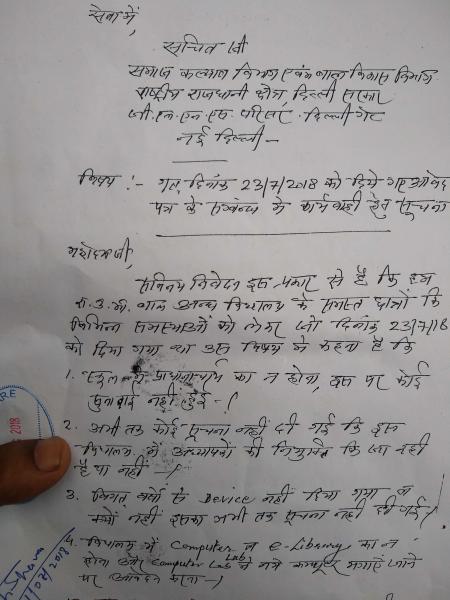 सेवा में,
सचिव जी
समाज कल्याण विभाग एवं बाल विकास विभाग
राष्ट्रीय राजधानी क्षेत्र, दिल्ली सरकार
जी.एल.एन.एस. परिसर दिल्ली गेट
नई दिल्ली -
विषय :- गत दिनांक 23/7/2018 को दिये गए आवेदन
पत्र के सम्बन्ध में कार्यवाही हेतु सूचना
महोदय जी,
सविनय निवेदन इस प्रकार से है कि हम
रा.उ.मा. बाल अन्ध विद्यालय के समस्त छात्रों कि
विभिन्न समस्याओं को लेकर जो दिनांक 23/7/18
को दिया गया था उस विषय में कहना है कि
1. स्कूल में प्रधानाचार्य का न होना, इस पर कोई
सुनवाई नहीं हुई -।
2. अभी तक कोई सूचना नहीं दी गई कि इस
विद्यालय में अध्यापकों की नियुक्ति कि जा रही
है या नहीं -।
3. विगत वर्षो से Device नहीं दिया गया व
क्यों नहीं इसका अभी तक सूचना नहीं दी गई।
4. विद्यालय में Computer व e-Library का न
होना और Computer Lab में नये कम्प्यूटर लगाएं जाने
पर आवेदन करना -।